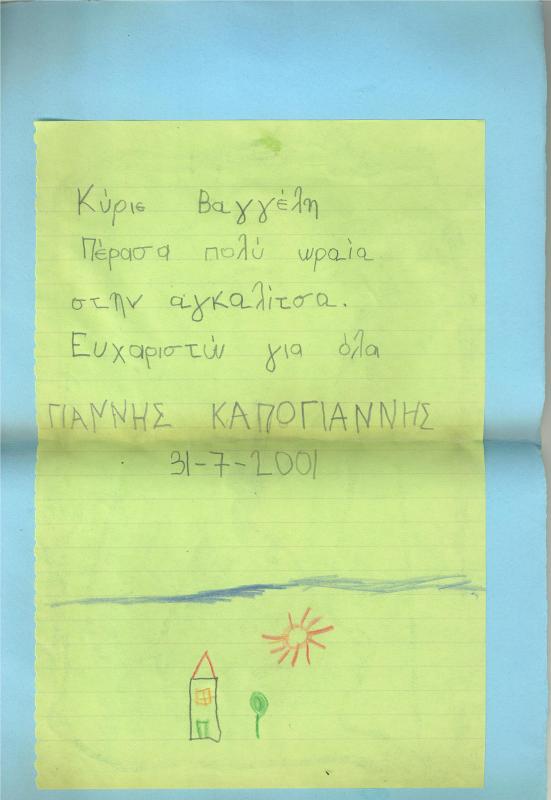 Κύριε Βαγγέλη
Πέρασα πολύ ωραία
στην αγκαλίτσα.
Ευχαριστών για όλα
ΓΙΑΝΝΗΣ ΚΑΠΟΓΙΑΝΝΗΣ
31-7-2001